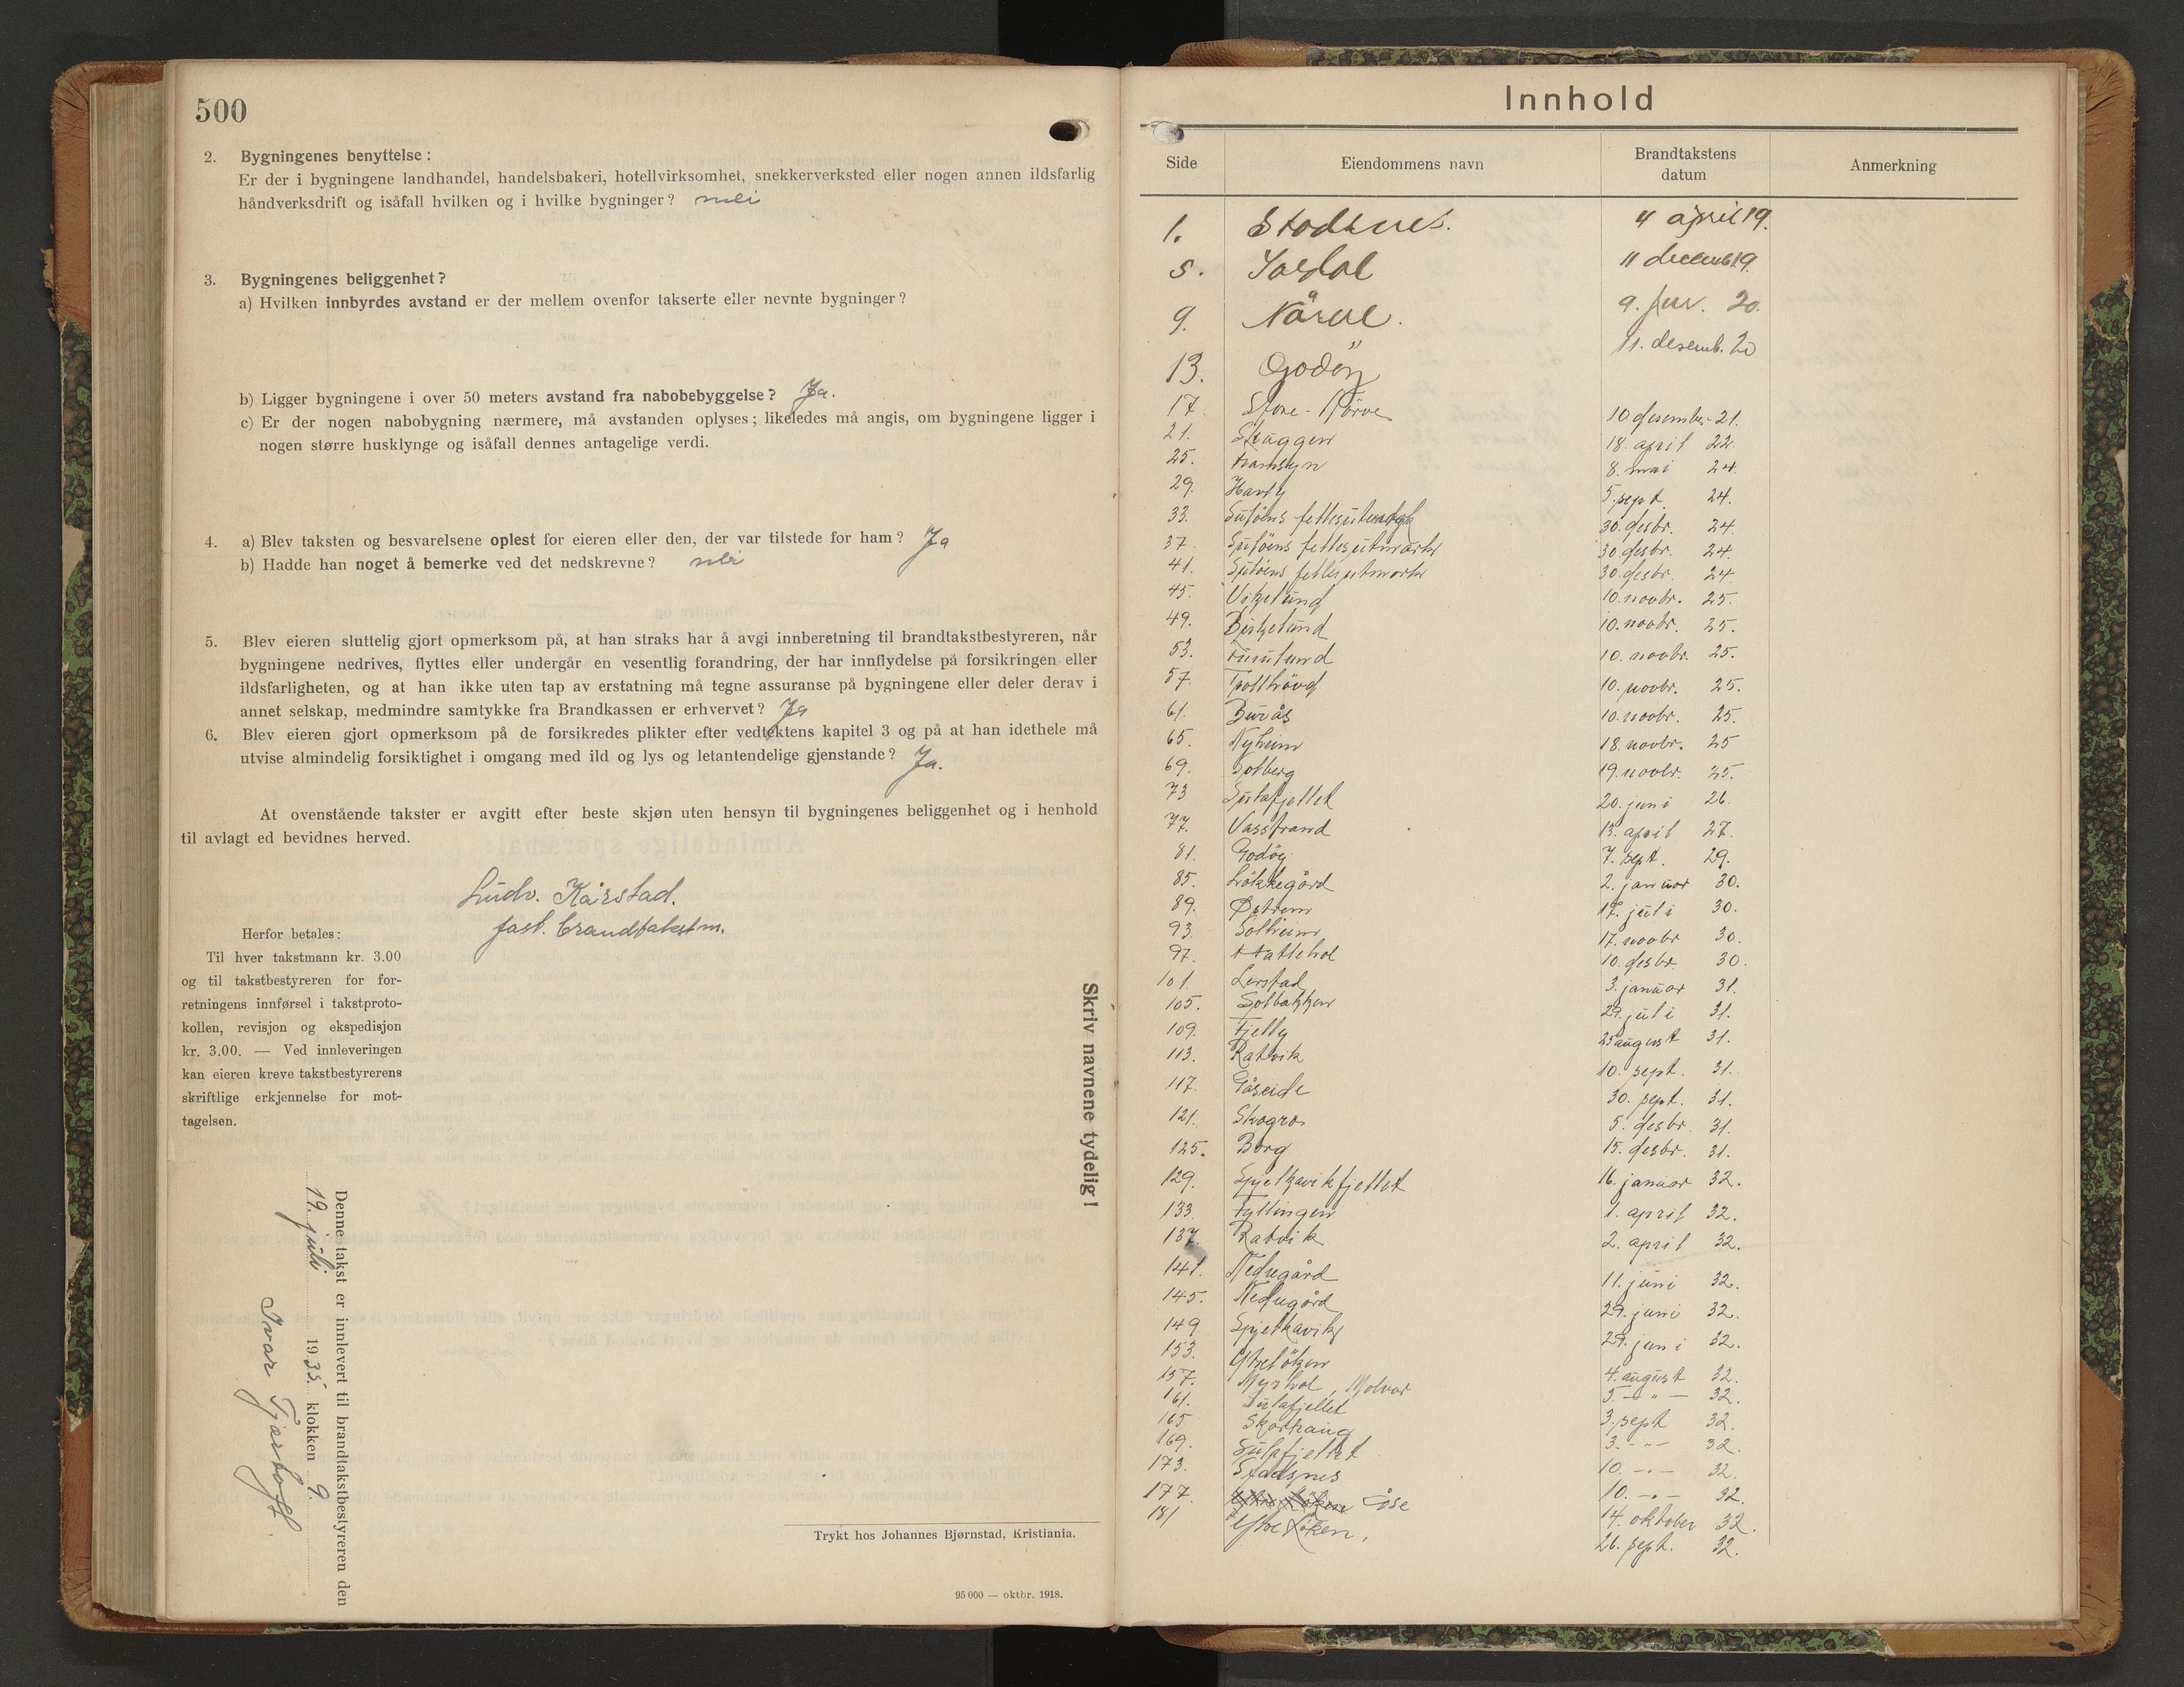 500
2. Bygningenes benyttelse:
Er der i bygningene landhandel, handelsbakeri, hotellvirksomhet, snekkerverksted eller nogen annen ildsfarlig
håndverksdrift og isåfall hvilken og i hvilke bygninger? nei
3. Bygningenes beliggenhet?
a) Hvilken innbyrdes avstand er der mellem ovenfor takserte eller nevnte bygninger?
b) Ligger bygningene i over 50 meters avstand fra nabobebyggelse? Ja.
c) Er der nogen nabobygning nærmere, må avstanden oplyses; likeledes må angis, om bygningene ligger i
nogen større husklynge og isåfall dennes antagelige verdi.
4. a) Blev taksten og besvarelsene oplest for eieren eller den, der var tilstede for ham? Ja
b) Hadde han noget å bemerke ved det nedskrevne? nei
5. Blev eieren sluttelig gjort opmerksom på, at han straks har å avgi innberetning til brandtakstbestyreren, når
bygningene nedrives, flyttes eller undergår en vesentlig forandring, der har innflydelse på forsikringen eller
ildsfarligheten, og at han ikke uten tap av erstatning må tegne assuranse på bygningene eller deler derav i
annet selskap, medmindre samtykke fra Brandkassen er erhvervet? Ja
6. Blev eieren gjort opmerksom på de forsikredes plikter efter vedtektens kapitel 3 og på at han idethele må
utvise almindelig forsiktighet i omgang med ild og lys og letantendelige gjenstande? Ja.
At ovenstående takster er avgitt efter beste skjøn uten hensyn til bygningenes beliggenhet og i henhold
til avlagt ed bevidnes herved.
Ludv. Kårstad.
fast. brandtakstm.
Herfor betales:
Til hver takstmann kr. 3.00
og til takstbestyreren for for-
retningens innførsel i takstproto-
kollen, revisjon og ekspedisjon
kr. 3.00. — Ved innleveringen
kan eieren kreve takstbestyrerens
skriftlige erkjennelse for mot-
tagelsen.
Denne takst er innlevert til brandtakstbestyreren den
19. juli 1935. klokken 9.
Ivar Tjartoft.
Skriv navnene tydelig!
Trykt hos Johannes Bjørnstad, Kristiania.
95 000 — oktbr. 1918.
Innhold
Side Eiendommens navn Brandtakstens datum Anmerkning
1. Stodsnes. 4 april 19.
5. 11 decemb 19.
9. 9. 20.
13. Godöy 11. desemb. 20
17. Store-Nörve 10 desember 21.
21. Skuggen 18. april 22.
25. Framsyn 8. mai 24.
29. Haugly 5. sept. 24.
33. Suløens fellesutmark 30. desbr. 24
37. Suløens fellesutmark 30 desbr. 24.
41. Suløens fellesutmark 30. desbr. 24.
45. Vikelund 10. novbr. 25.
49. Birkelund 10. novbr. 25.
53. Furulund 10. novbr. 25.
57 Trollhövd 10. novbr. 25.
61. Buvås 10. novbr. 25.
65. Nyheim 18. novbr. 25
69. Solberg 19. novbr. 25.
73 Sulafjellet 20. juni 26.
77. Vasstrand 13. april 27.
81. Godöy 7. sept. 29.
85. Løkkegård 2. januar 30.
89. Østrem 17. juli 30.
93. Solheim 17. novbr 30.
97. Hattehol 10. desbr. 30.
101. Lerstad 3. januar 31.
105. Solbakken 29. juli 31.
109. Fjelly 25 august 31.
113. Ratvik 10. sept. 31.
117. Gåseide 30. sept. 31.
121. Skogro 5. desbr. 31.
125. Borg 15. desbr. 31.
129. Spjelkavikfjellet 16. januar 32.
133. Fyllingen 1. april 32.
137. Ratvik 2. april 32.
141. Nedregård 11. juni 32.
145. Nedregård 29. juni 32.
149 Spjelkavik 29. juni 32.
153. Ytreløken 4. august 32.
157. Myrhol, Molvær 5 -"- 32.
161. Sulafjellet 3. sept 32.
165 Skorhaug 3. -"- 32.
169. Sulafjellet 10. -"- 32.
173. Stadsnes 10. -"- 32.
177. Åse 14. oktober 32.
181 Ytreløken. 26. sept. 32.